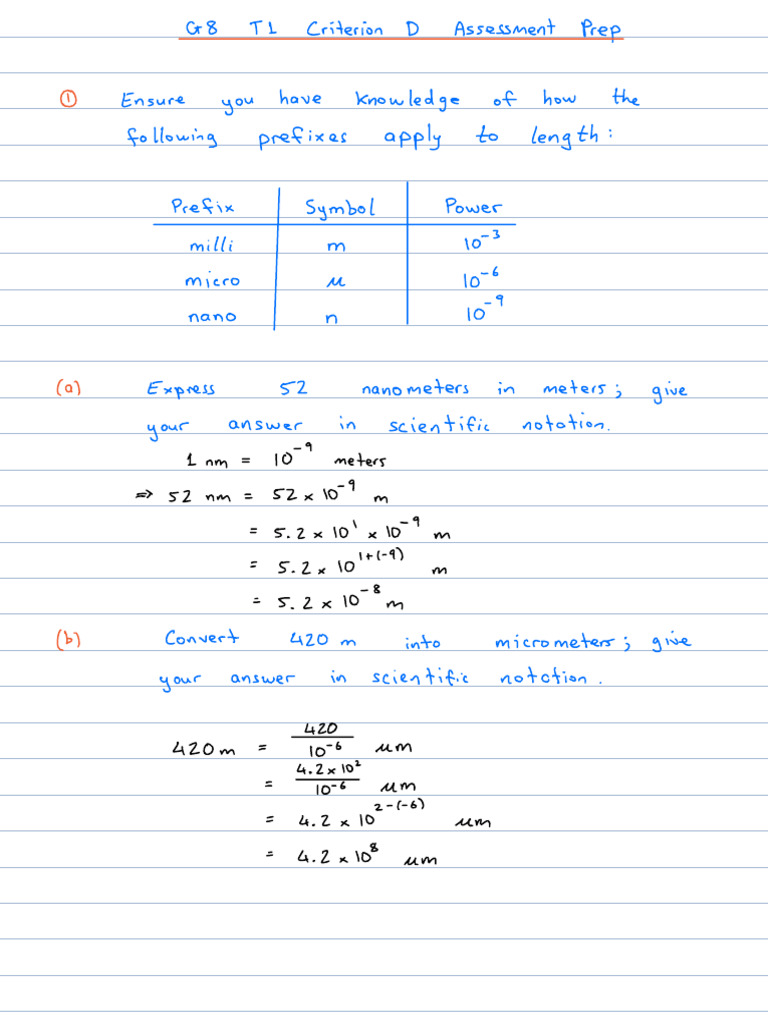 G8 T1 Criterion D Assessment Prep
① Ensure you have knowledge of how the
following prefixes apply to length:
Prefix Symbol Power
milli m 10⁻³
micro μ 10⁻⁶
nano n 10⁻⁹
(a) Express 52 nanometers in meters; give
your answer in scientific notation.
1 nm = 10⁻⁹ meters
⇒ 52 nm = 52 × 10⁻⁹ m
= 5.2 × 10¹ × 10⁻⁹ m
= 5.2 × 10¹⁺⁽⁻⁹⁾ m
= 5.2 × 10⁻⁸ m
(b) Convert 420 m into micrometers; give
your answer in scientific notation.
420 m = 420 / 10⁻⁶ μm
= 4.2 × 10² / 10⁻⁶ μm
= 4.2 × 10²⁻⁽⁻⁶⁾ μm
= 4.2 × 10⁸ μm